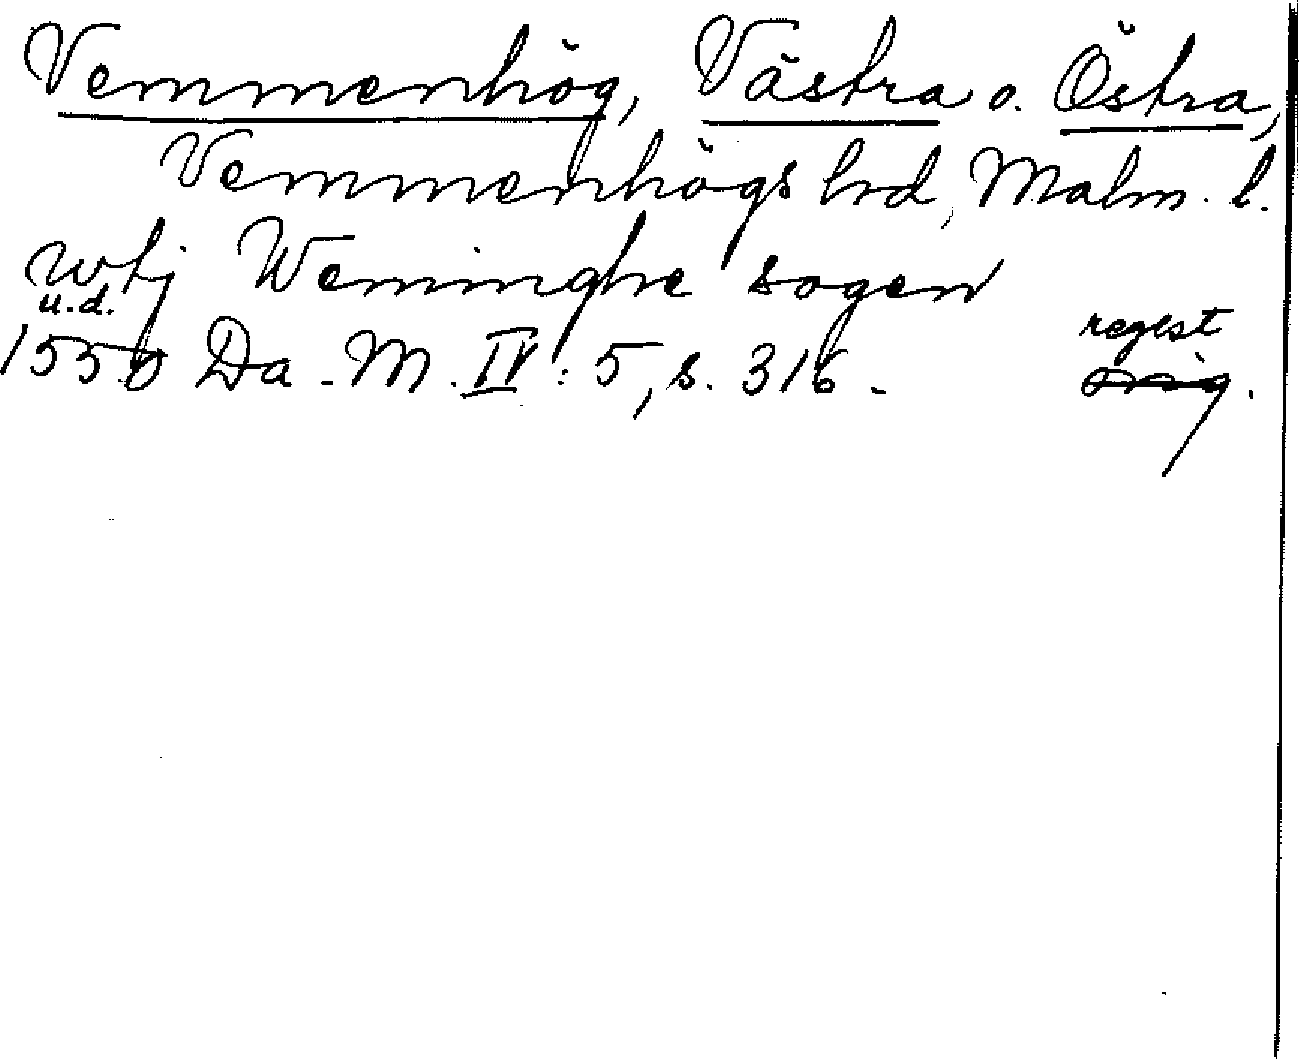 Vemmenhög, Västra o. Östra,
Vemmenhögs hrd, Malm. l.
utj Weminghe sogen
u.d.
1550 Da. M. IV: 5, s. 316.
regest
orig.